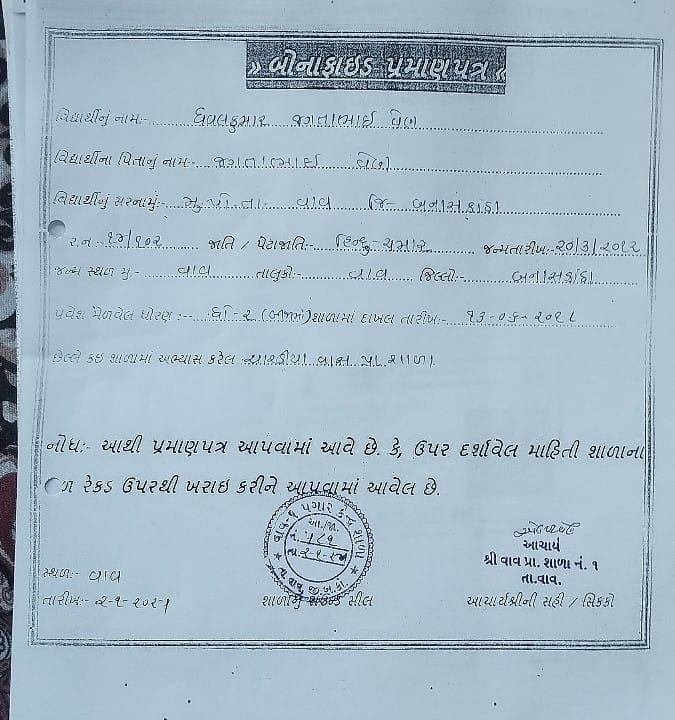 » બોનાફાઇડ પ્રમાણપત્ર «
વિદ્યાર્થીનું નામ:- ધવલકુમાર જગતાભાઈ વેણ
વિદ્યાર્થીના પિતાનું નામ:- જગતાભાઈ વેણ
વિદ્યાર્થીનું સરનામું:- મુ.પો.તા- વાવ જિ- બનાસકાંઠા
ર.ન ૧૪/૧૦૨ જાતિ / પેટાજાતિ:- હિન્દુ-ચમાર જન્મતારીખ:- ૨૦/૩/૨૦૧૨
જન્મ સ્થળ મુ.- વાવ તાલુકો:- વાવ જિલ્લો:- બનાસકાંઠા
પ્રવેશ મેળવેલ ધોરણ :-- ધો-૨ શાળામાં દાખલ તારીખ:-
છેલ્લે કઇ શાળામાં અભ્યાસ કરેલ પ્રા. શાળા
નોંધ:- આથી પ્રમાણપત્ર આપવામાં આવે છે. કે, ઉપર દર્શાવેલ માહિતી શાળાના
રેકર્ડ ઉપરથી ખરાઇ કરીને આપવામાં આવેલ છે.
વાવ-૧ પગાર કેન્દ્ર શાળા
આ./જા.
નં. ૫૮૧
તા. વાવ, જી.બ.કાં.
આચાર્ય
શ્રી વાવ પ્રા. શાળા નં. ૧
તા.વાવ.
સ્થળ:- વાવ
તારીખ:- ૨-૧-૨૦૨૫ શાળાનું રાઉન્ડ સીલ આચાર્યશ્રીની સહી / સિક્કો